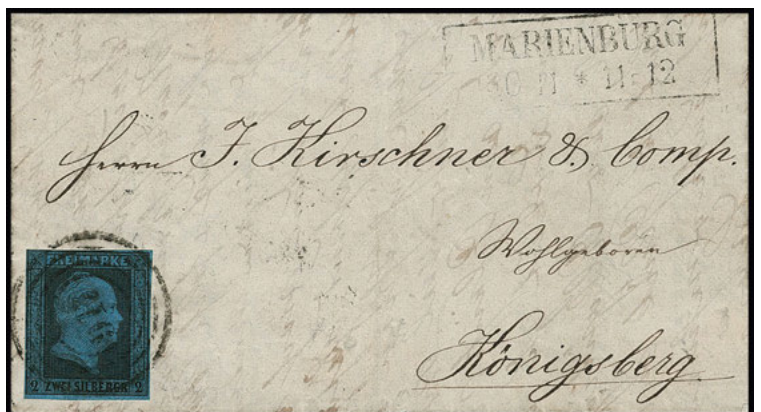 MARIENBURG
30 11 * 11-12
Herrn J. Kirschner & Comp.
Wohlgeboren
Königsberg
FREIMARKE
2 ZWEI SILBERGR. 2